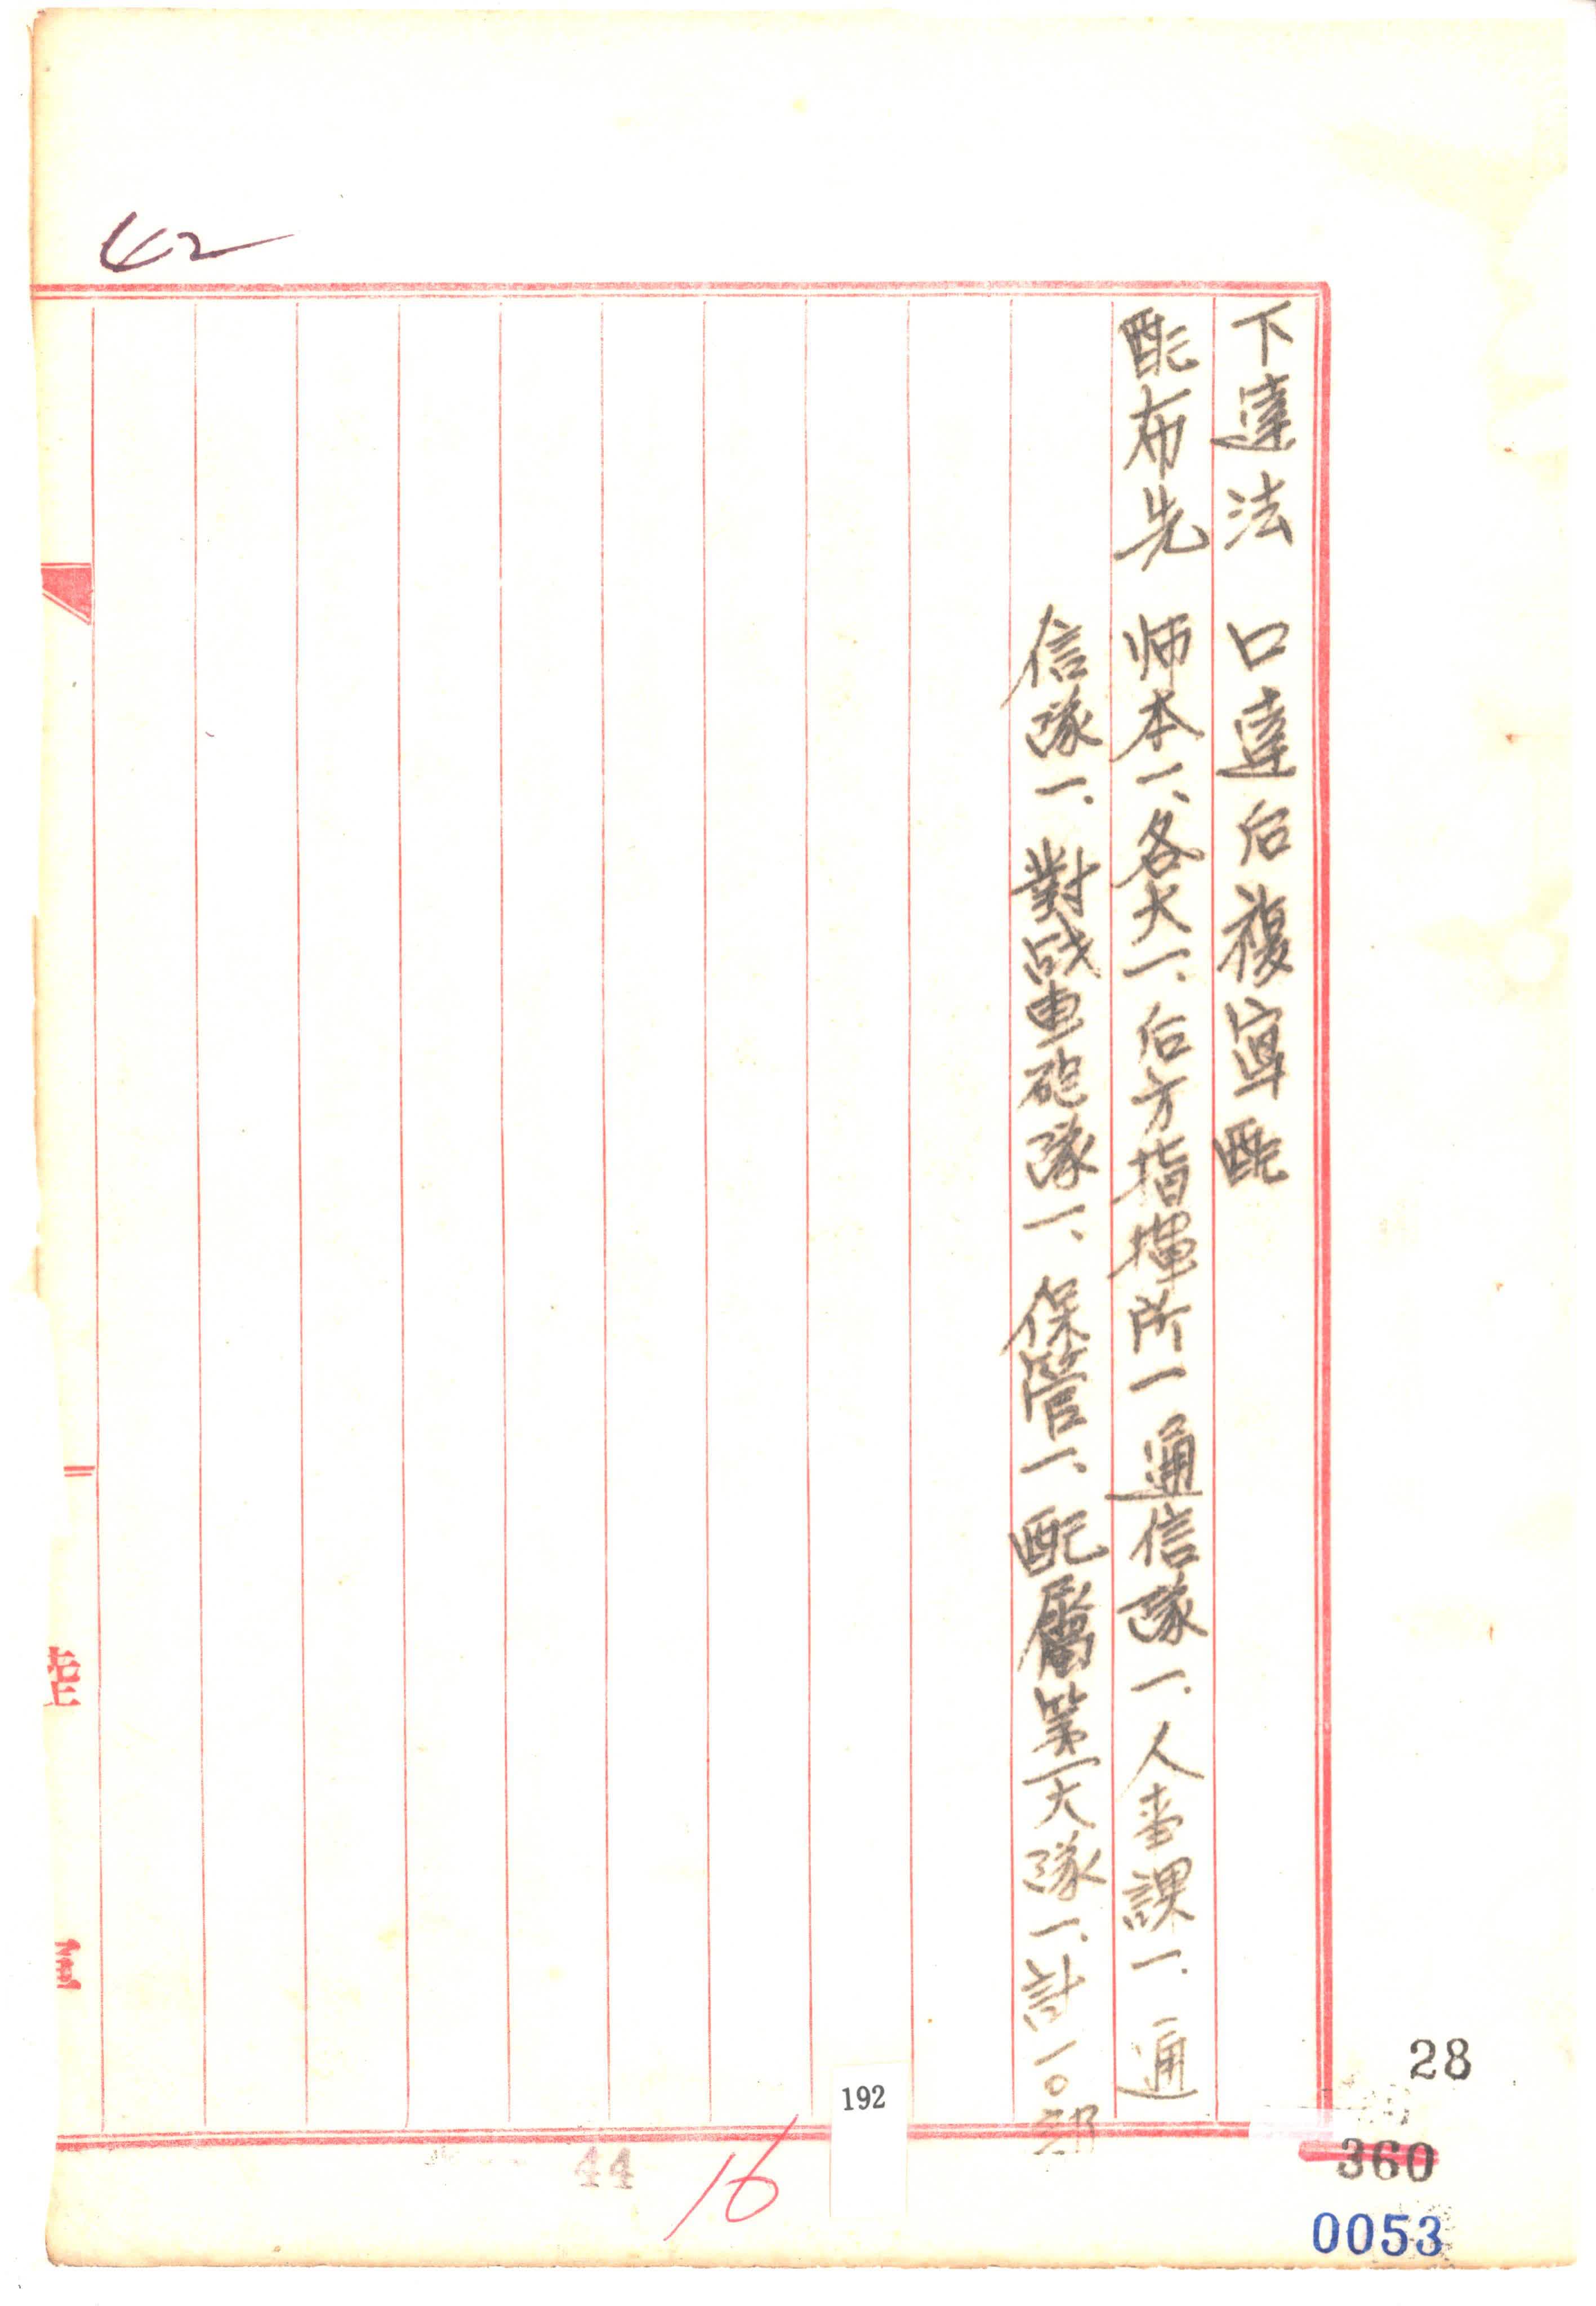 42
下達法　口達后複寫配
配布先　师本一、各大一、后方指揮所一通信隊一、人事課一、通
信隊一、對战車砲隊一、保管一、配屬第一大隊一、計一〇部
陸
軍
28
360
0053
192
16
44